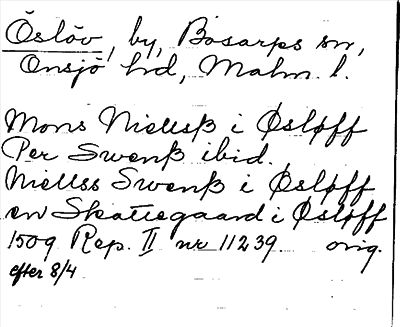 Öslöv, by, Bosarps sn,
Onsjö hd, Malm. l.
Mons Nielssß i Øsløff
Per Swenß ibid.
Niellss Swenß i Øsløff
en Skattegaard i Øsløff
1509 Rep. II nr 11239. orig.
efter 8/4